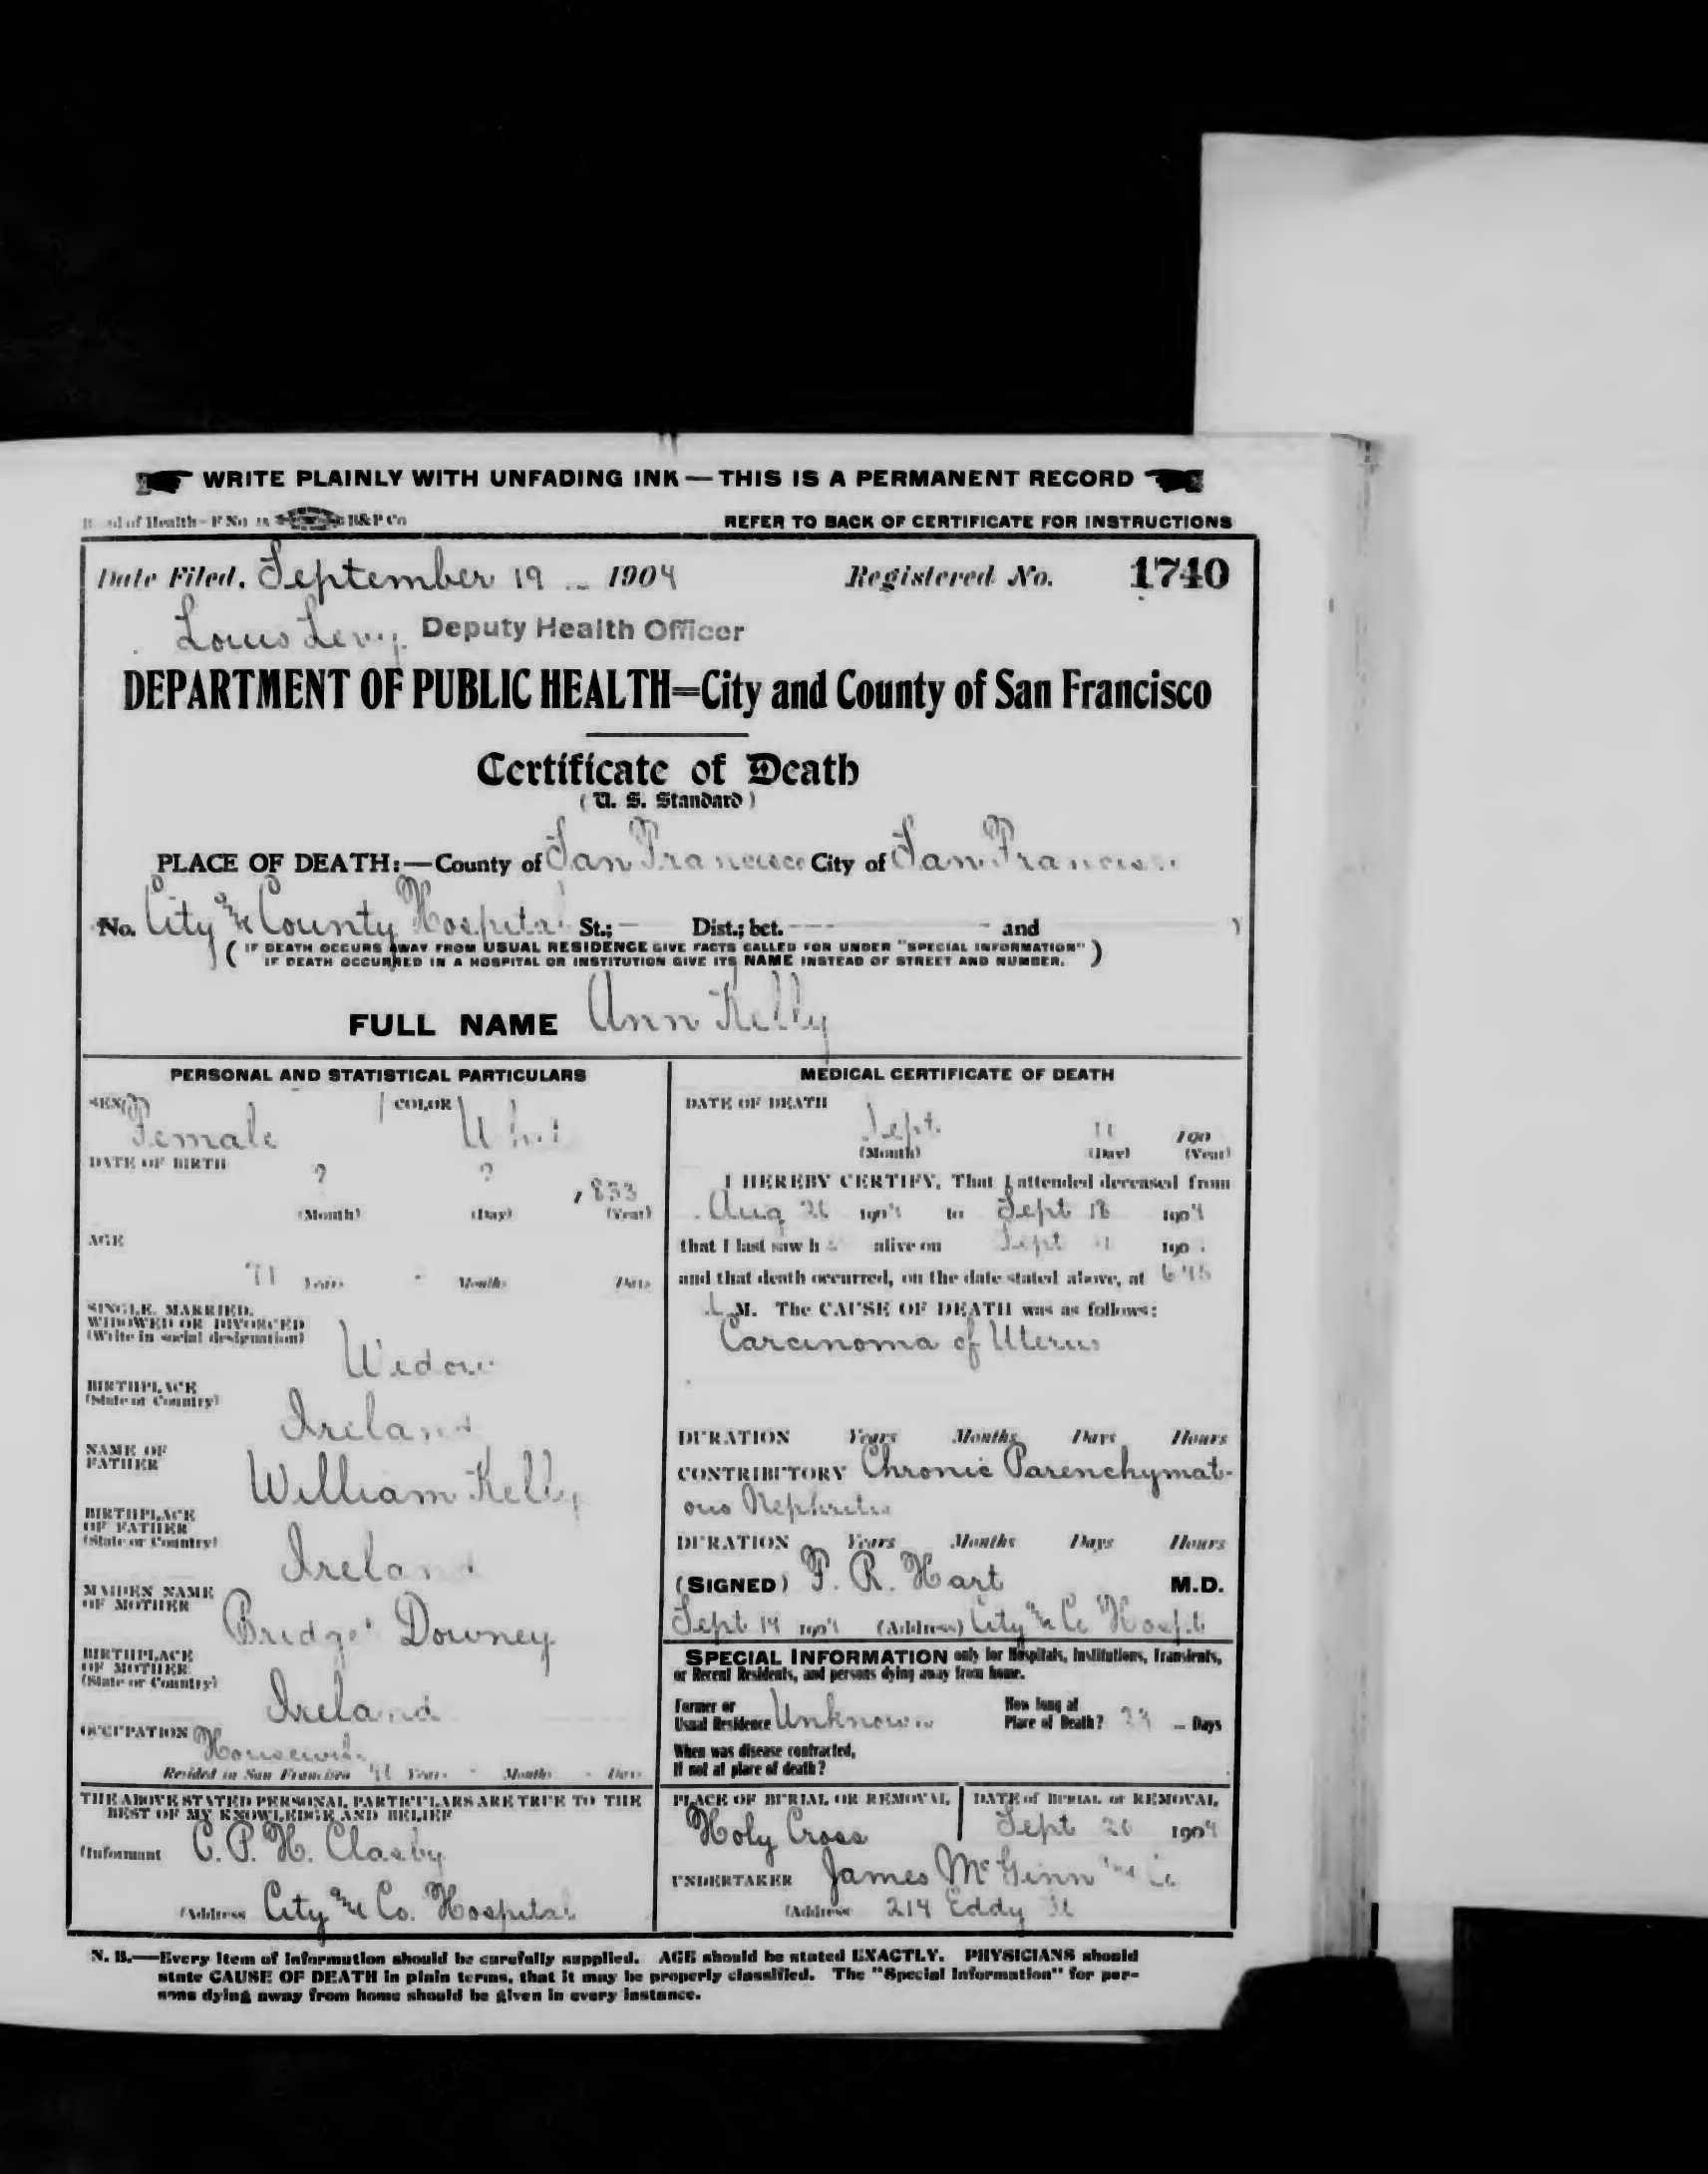 WRITE PLAINLY WITH UNFADING INK — THIS IS A PERMANENT RECORD
of Health - F No B&P Co
REFER TO BACK OF CERTIFICATE FOR INSTRUCTIONS
Date Filed, September 19 1904 Registered No. 1740
Louis Levy Deputy Health Officer
DEPARTMENT OF PUBLIC HEALTH=City and County of San Francisco
Certificate of Death
(U. S. Standard)
PLACE OF DEATH:—County of San Francisco City of San Francisco
No. City and County Hospital St.; Dist.; bet. and )
( IF DEATH OCCURS AWAY FROM USUAL RESIDENCE GIVE FACTS CALLED FOR UNDER "SPECIAL INFORMATION"
IF DEATH OCCURRED IN A HOSPITAL OR INSTITUTION GIVE ITS NAME INSTEAD OF STREET AND NUMBER. )
FULL NAME Ann Kelly
PERSONAL AND STATISTICAL PARTICULARS
SEX Female COLOR
DATE OF BIRTH
? ? 1833
(Month) (Day) (Year)
AGE
71 Years - Months Days
SINGLE, MARRIED,
WIDOWED OR DIVORCED
(Write in social designation)
Widow
BIRTHPLACE
(State or Country)
Ireland
NAME OF
FATHER
William Kelly
BIRTHPLACE
OF FATHER
(State or Country)
Ireland
MAIDEN NAME
OF MOTHER
Bridget Downey
BIRTHPLACE
OF MOTHER
(State or Country)
Ireland
OCCUPATION
Housewife
Resided in San Francisco Years - Months - Days
THE ABOVE STATED PERSONAL PARTICULARS ARE TRUE TO THE
BEST OF MY KNOWLEDGE AND BELIEF
(Informant C. P. H. Clasby
(Address City and Co. Hospital
MEDICAL CERTIFICATE OF DEATH
DATE OF DEATH
Sept. 190
(Month) (Day) (Year)
I HEREBY CERTIFY, That I attended deceased from
Aug 26 1904 to Sept 18 1904
that I last saw h alive on Sept 190
and that death occurred, on the date stated above, at 6 45
M. The CAUSE OF DEATH was as follows:
Carcinoma of Uterus
DURATION Years Months Days Hours
CONTRIBUTORY Chronic Parenchymat-
ous Nephritis
DURATION Years Months Days Hours
(SIGNED) F. R. Hart M.D.
Sept 19 1904 (Address) City and Co Hospt
SPECIAL INFORMATION only for Hospitals, Institutions, Transients,
or Recent Residents, and persons dying away from home.
Former or
Usual Residence Unknown
How long at
Place of Death? 23 Days
When was disease contracted,
If not at place of death?
PLACE OF BURIAL OR REMOVAL
Holy Cross
DATE of BURIAL or REMOVAL
Sept 20 1904
UNDERTAKER James McGinn and Co
(Address 214 Eddy St
N. B.—Every item of information should be carefully supplied. AGE should be stated EXACTLY. PHYSICIANS should
state CAUSE OF DEATH in plain terms, that it may be properly classified. The "Special Information" for per-
sons dying away from home should be given in every instance.